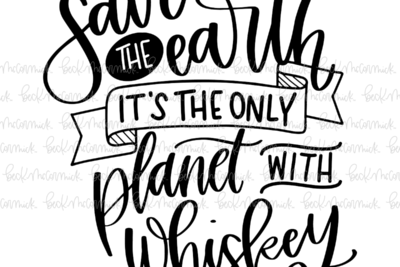 Save
THE earth
IT'S THE ONLY
Planet WITH
Whiskey